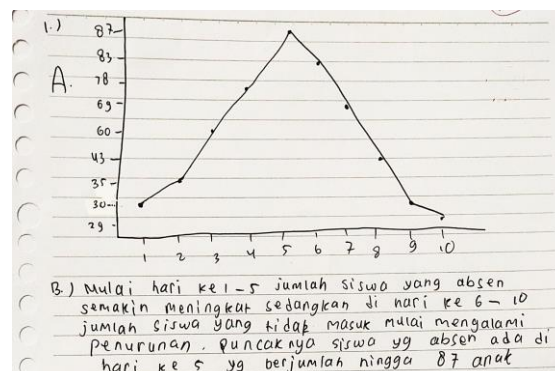 1.)
A.
87
83
78
69
60
43
35
30
29
1 2 3 4 5 6 7 8 9 10
B.) Mulai hari ke 1-5 jumlah siswa yang absen
semakin meningkat sedangkan di hari ke 6-10
jumlah siswa yang tidak masuk mulai mengalami
penurunan. Puncaknya siswa yg absen ada di
hari ke 5 yg berjumlah hingga 87 anak